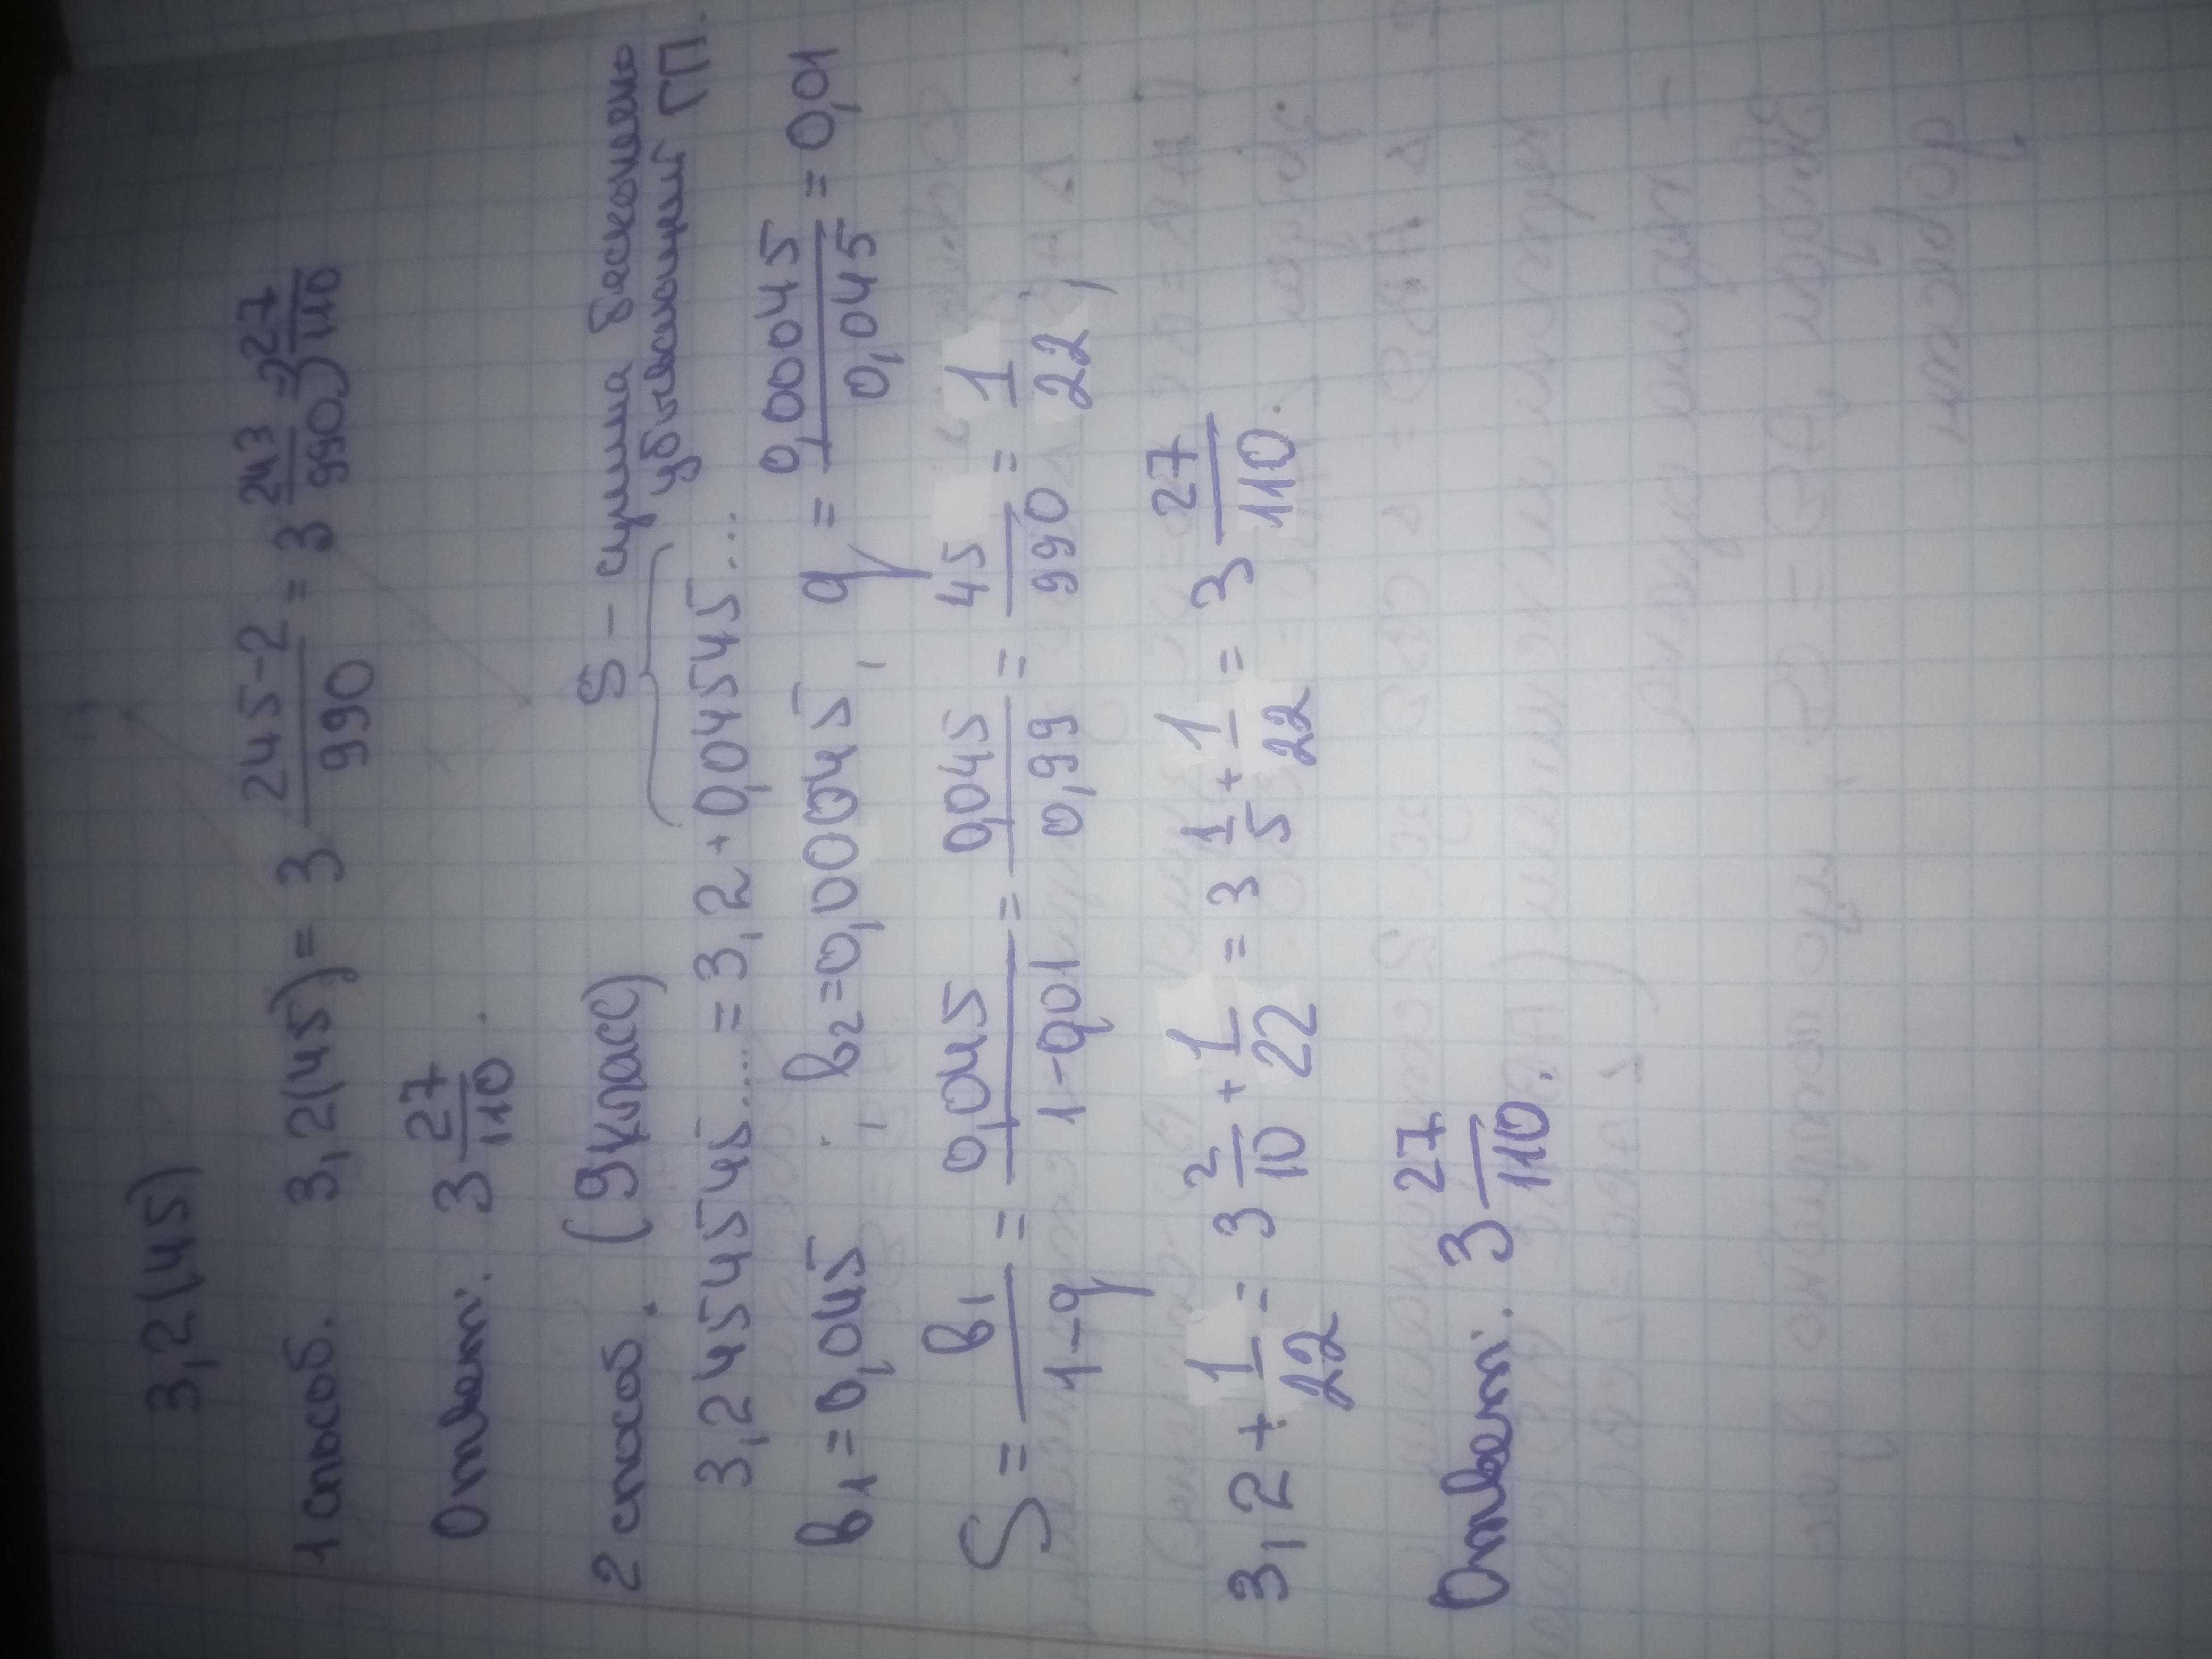 3,2(45)
1 способ. 3,2(45) = 3 245-2/990 = 3 243/990 = 3 27/110
Ответ: 3 27/110.
2 способ. (9 класс) S – сумма бесконечно убывающей ГП.
3,2454545... = 3,2 + 0,04545...
b1 = 0,045; b2 = 0,00045, q = 0,00045/0,045 = 0,01
S = b1/1-q = 0,045/1-0,01 = 0,045/0,99 = 45/990 = 1/22;
3,2 + 1/22 = 3 2/10 + 1/22 = 3 1/5 + 1/22 = 3 27/110.
Ответ: 3 27/110.